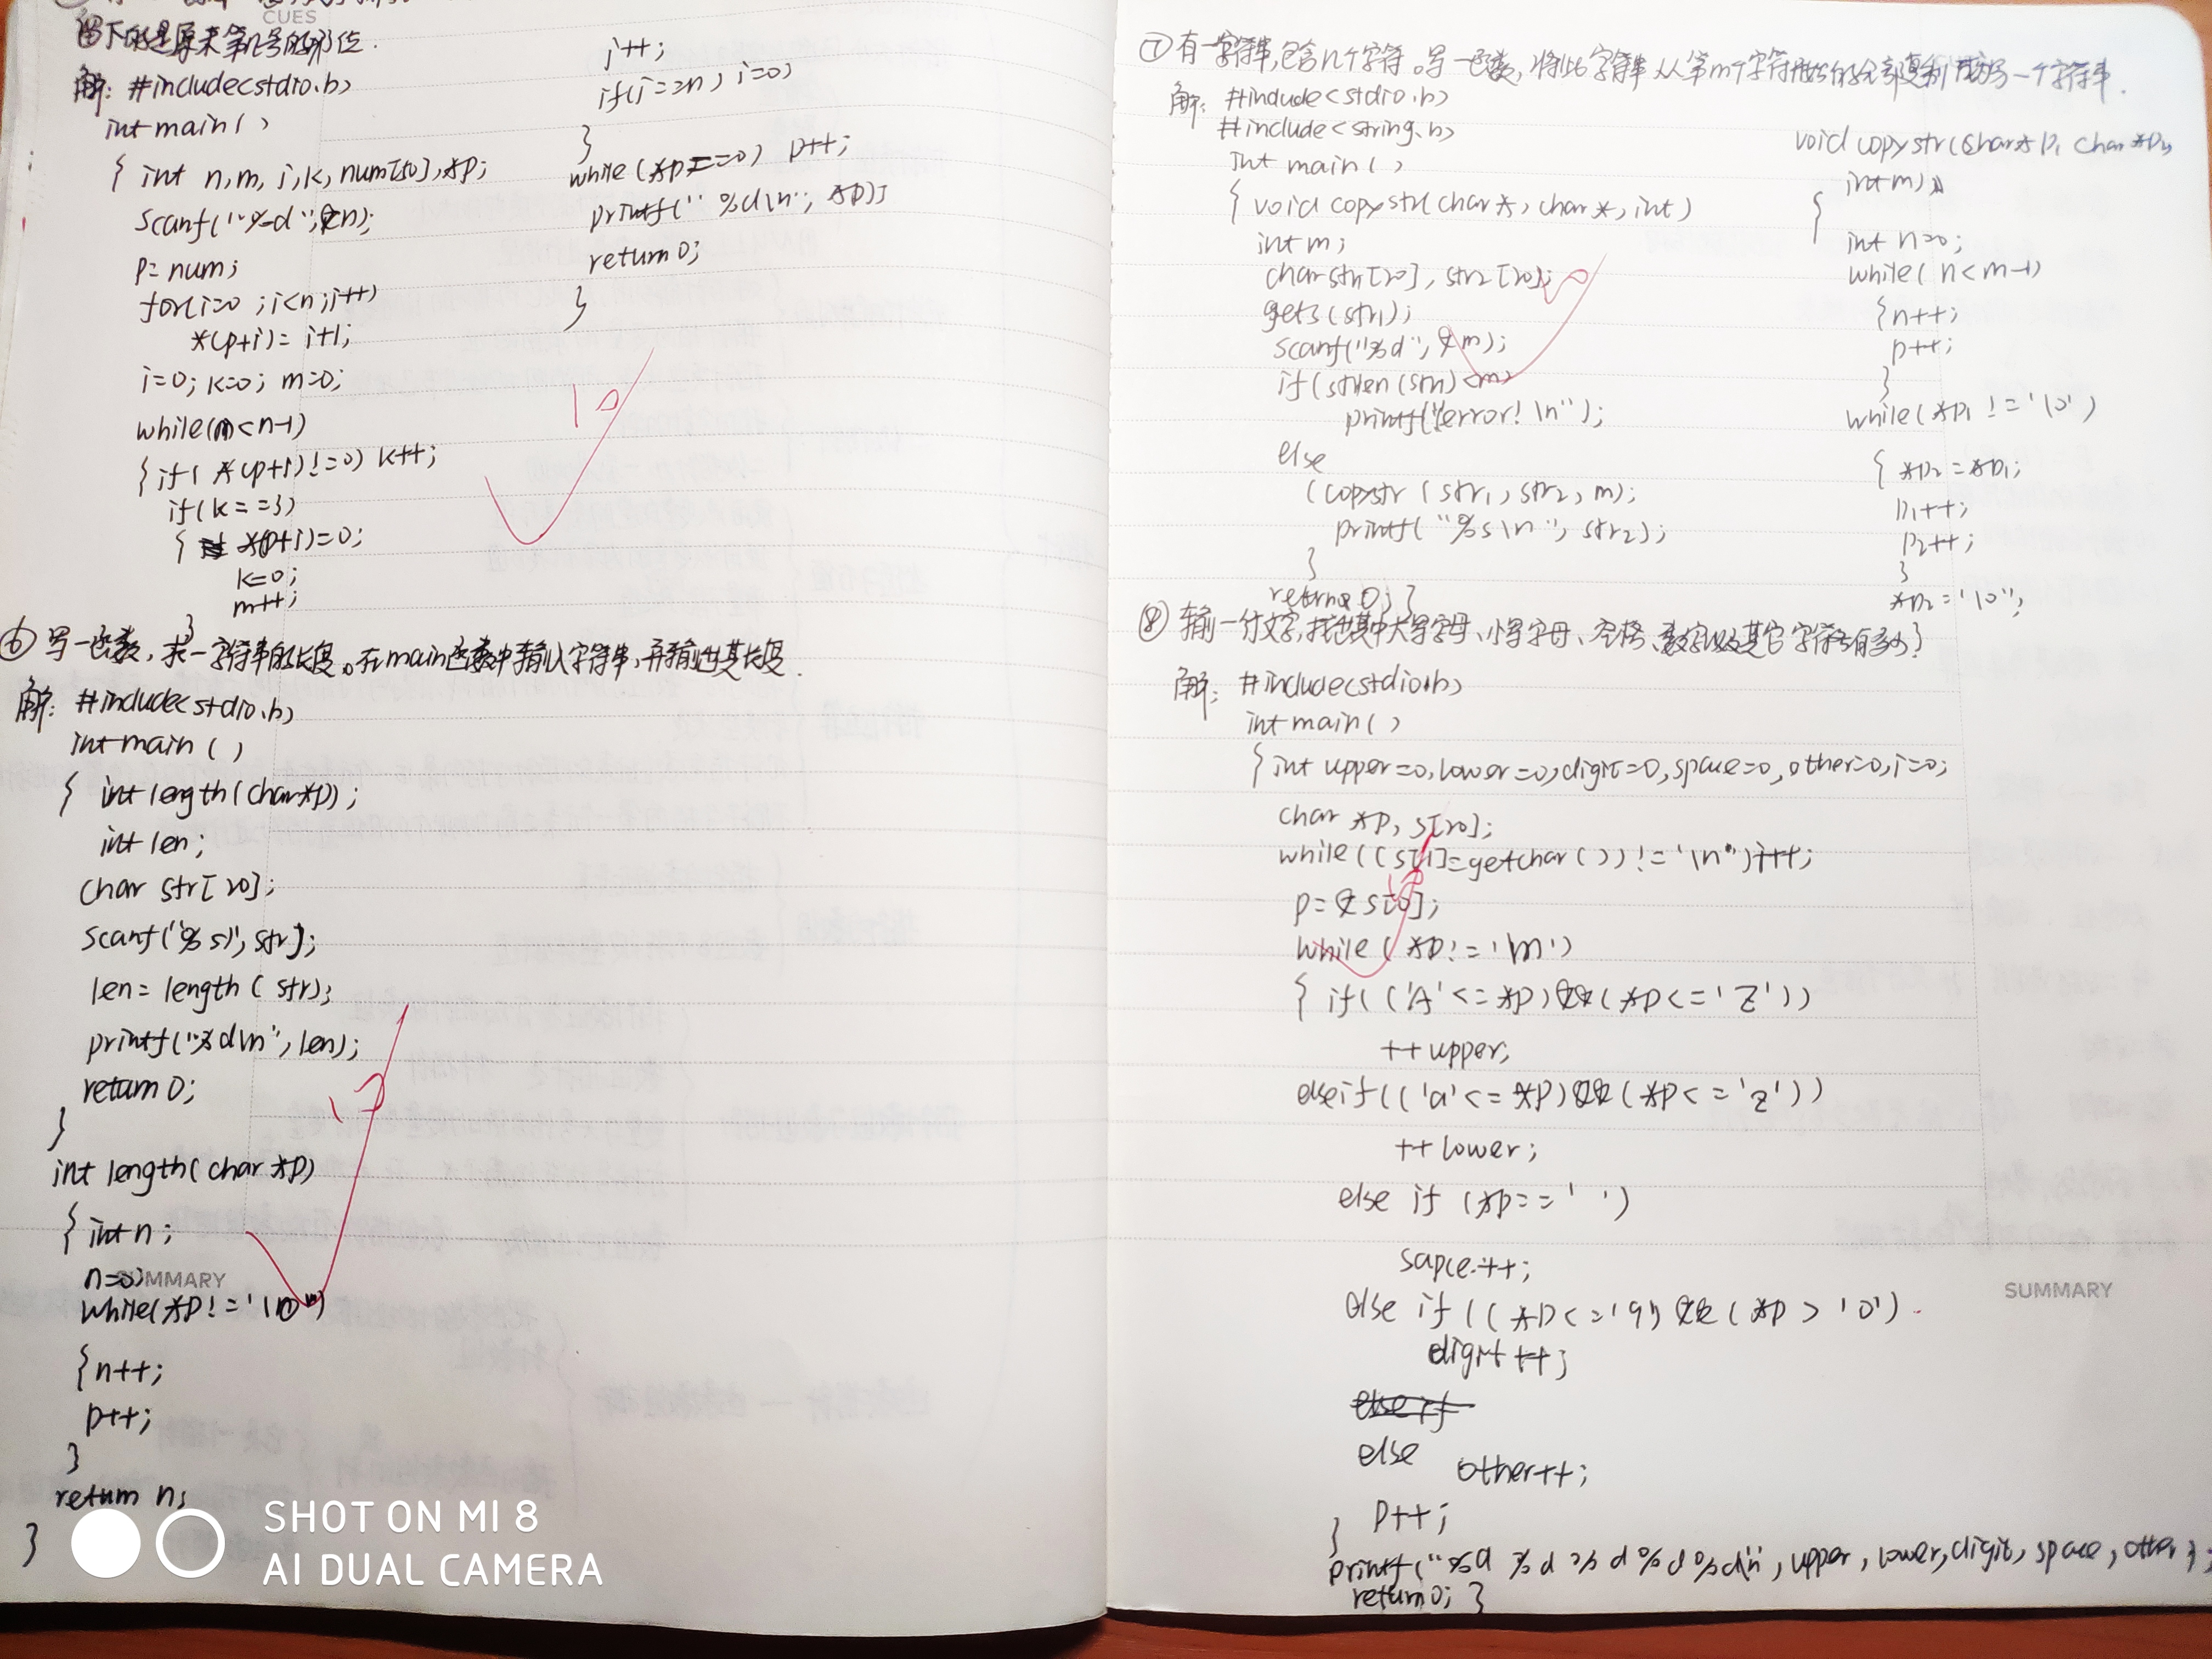 CUES
留下的是原来第几号的那位.
解: #include<stdio.h>
int main()
{ int n,m,i,k,num[50],*p;
scanf("%d",&n);
p=num;
for(i=0;i<n;i++)
*(p+i)=i+1;
i=0; k=0; m=0;
while(m<n-1)
{if(*(p+i)!=0) k++;
if(k==3)
{ *(p+i)=0;
k=0;
m++;
}
i++;
if(i==n) i=0;
}
while(*p==0) p++;
printf("%d\n", *p);
return 0;
}
10
⑥ 写一函数,求一字符串的长度。在main函数中输入字符串,并输出其长度.
解: #include<stdio.h>
int main()
{ int length(char*p);
int len;
char str[20];
scanf("%s",str);
len=length(str);
printf("%d\n",len);
return 0;
}
int length(char *p)
{ int n;
n=0;
SUMMARY
while(*p!='\0')
{n++;
p++;
}
return n;
}
SHOT ON MI 8
AI DUAL CAMERA
⑦ 有一字符串,包含n个字符。写一函数,将此字符串从第m个字符开始的全部复制成为另一个字符串.
解: #include<stdio.h>
#include<string.h>
int main()
{ void copystr(char*,char*,int)
int m;
char str1[20], str2[20];
gets(str1);
scanf("%d",&m);
if(strlen(str1)<m)
printf("error!\n");
else
{copystr(str1,str2,m);
printf("%s\n",str2);
}
return 0; }
void copystr(char*p1 char*p2,
int m)
{
int n=0;
while(n<m-1)
{n++;
p++;
}
while(*p1!='\0')
{ *p2=*p1;
p1++;
p2++;
}
*p2='\0';
⑧ 输一行文字,找出其中大写字母、小写字母、空格、数字以及其它字符各有多少?
解: #include<stdio.h>
int main()
{int upper=0,lower=0,digit=0,space=0,other=0,i=0;
char *p, s[20];
while((s[i]=getchar())!='\n')i++;
p=&s[0];
while(*p!='\n')
{ if(('A'<=*p)&&(*p<='Z'))
++upper;
else if(('a'<=*p)&&(*p<='z'))
++lower;
else if (*p==' ')
sapce++;
else if((*p<='9')&&(*p>'0')
digit++;
else if
else
other++;
p++;
}
printf("%d %d %d %d %d\n",upper,lower,digit,space,other);
return 0; }
SUMMARY